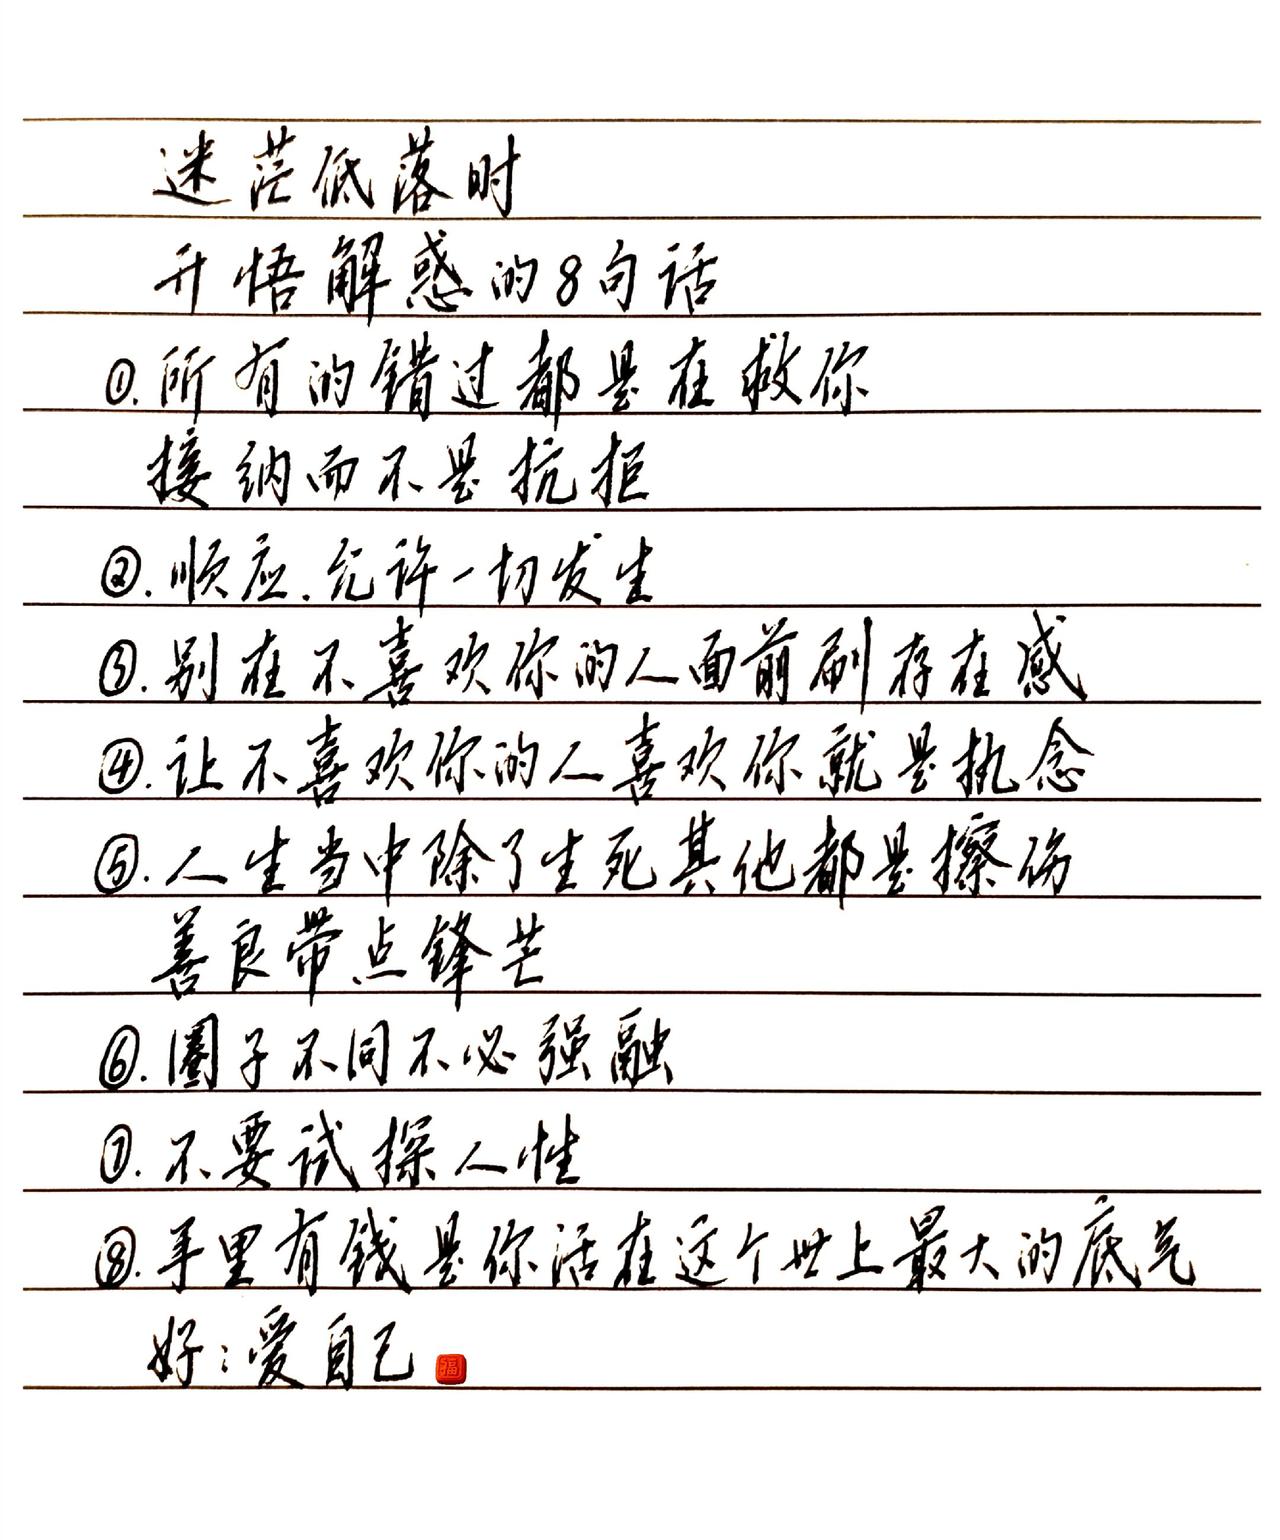 迷茫低落时
开悟解惑的8句话
①.所有的错过都是在救你
接纳而不是抗拒
②.顺应.允许一切发生
③.别在不喜欢你的人面前刷存在感
④.让不喜欢你的人喜欢你就是执念
⑤.人生当中除了生死其他都是擦伤
善良带点锋芒
⑥.圈子不同不必强融
⑦.不要试探人性
⑧.手里有钱是你活在这个世上最大的底气
好:爱自己
福